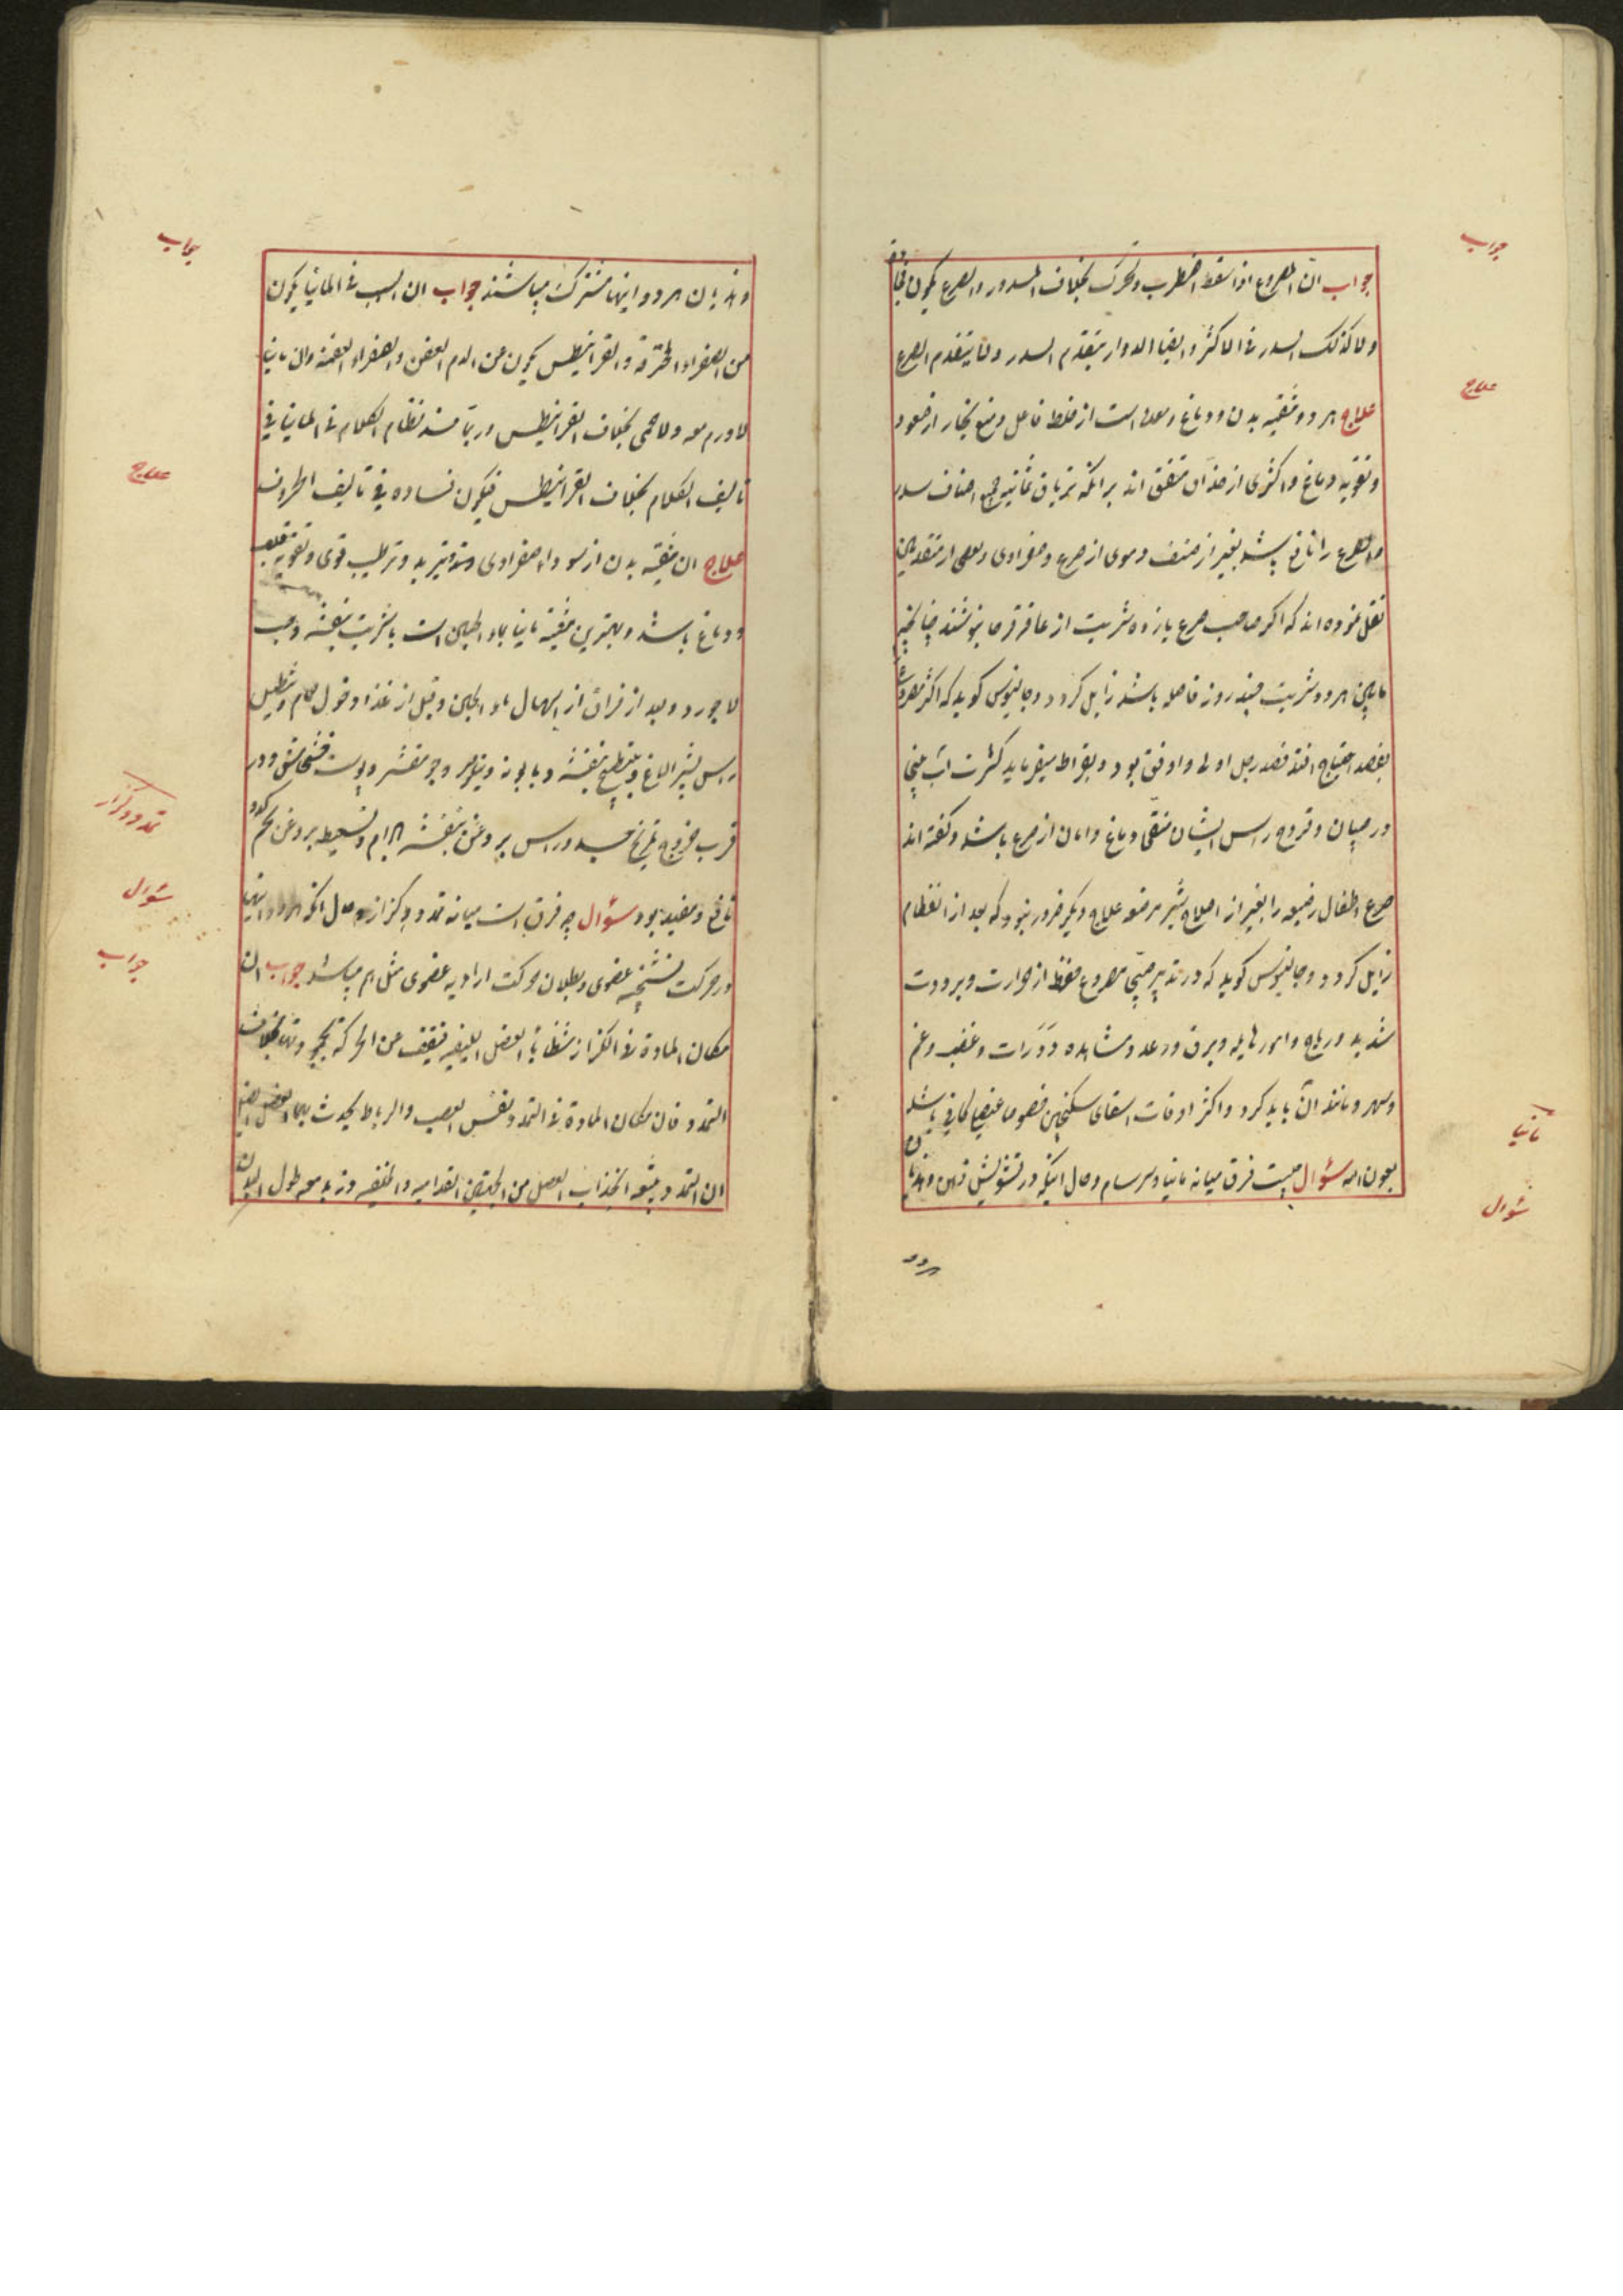 جواب
جواب ان المصروع اذا سقط اضطرب وتحرک بخلاف المسدور والصرع یکون فجا
دفعة
ولا کذلک السدر فی الاکثر وایضا الدوار یتقدم السدر ولا یتقدم الصرع
علاج
علاج هر دو تنقیه بدن و دماغ و معده است از خلط فاعل و منع بخار از صعود
و تقویه دماغ و اکثری از حذاق متفق اند بر آنکه تریاق ثمانیه جمیع اصناف سدر
و صرع را نافع باشد بغیر از صنف دموی از صرع و صفراوی و بعضی از متقدمین
نقل نموده اند که اگر صاحب صرع یازده شربت از عاقرقرحا بنوشند چنانچه
مابین هر دو شربت چند روز فاصله باشد زایل گردد و جالینوس گوید که اکثر مصروع
بفصد احتیاج افتد فصد رجل اولی و اوفق بود و بقراط میفرماید کثرت آب بینی
در صبیان و قروح راس ایشان منقی دماغ و امان از صرع باشد و گفته اند
صرع اطفال رضیعه را بغیر از اصلاح شیر مرضعه علاج دیگر ضرور نبود که بعد از انفطام
زایل گردد و جالینوس گوید که در تدبیر صبی مصروع حفظ از حرارت و برودت
شدید و ریاح و امور هایله و برق و رعد و مشاهده دورات و غضب و غم
و سهر و مانند آن باید کرد و اکثر اوقات اسقای سکنجبین خصوصا عنصلی کافی باشد
مانیا
بعون الله سؤال چیست فرق میانه مانیا و سرسام و حال اینکه در تشویش ذهن و هذیان
سؤال
هر دو
جواب
و هذیان هر دو اینها مشترک میباشند جواب ان السبب فی المانیا یکون
من الصفراء المحترقة والقرانیطس یکون من الدم العفن والصفراء العفنة وان مانیا
لا ورم معه ولا حمی بخلاف القرانیطس وربما فسد نظام الکلام فی المانیا فی
علاج
تالیف الکلام بخلاف القرانیطس فیکون فساده فی تالیف الحروف
علاج ان تنقیه بدن از سودا و صفراوی و تبرید و ترطیب قوی و تقویه قلب
و دماغ باشد و بهترین تنقیه مانیا بماء الجبن است با شربت بنفشه و حب
لاجورد و بعد از فراق از اسهال ماء الجبن و قبل از غذا دخول حمام و تنطیل
راس بشیر الاغ و بطبیخ بنفشه و بابونه و نیلوفر و جو مقشر و پوست خشخاش و در
تمدد و کزاز
قرب خروج تمریخ جسد و راس بروغن بنفشه بادام و تسعیط بروغن تخم کدو
سؤال
نافع و مفید بود سؤال چه فرق است میانه تمدد و کزاز و حال آنکه هر دو اینها
جواب
در حرکت تشنجیه عضوی و بطلان حرکت ارادیه عضوی مثل هم میباشد جواب ان
مکان المادة فی الکزاز شظایا العضل اللیفیه فیقف من الحرکة بخلاف
التمدد فان مکان المادة فی التمدد نفس العصب والرباط یحدث
ان التمدد یتبعه انجذاب العضل من الجهتین القدامیه والخلفیه ویزید معه طول البدن